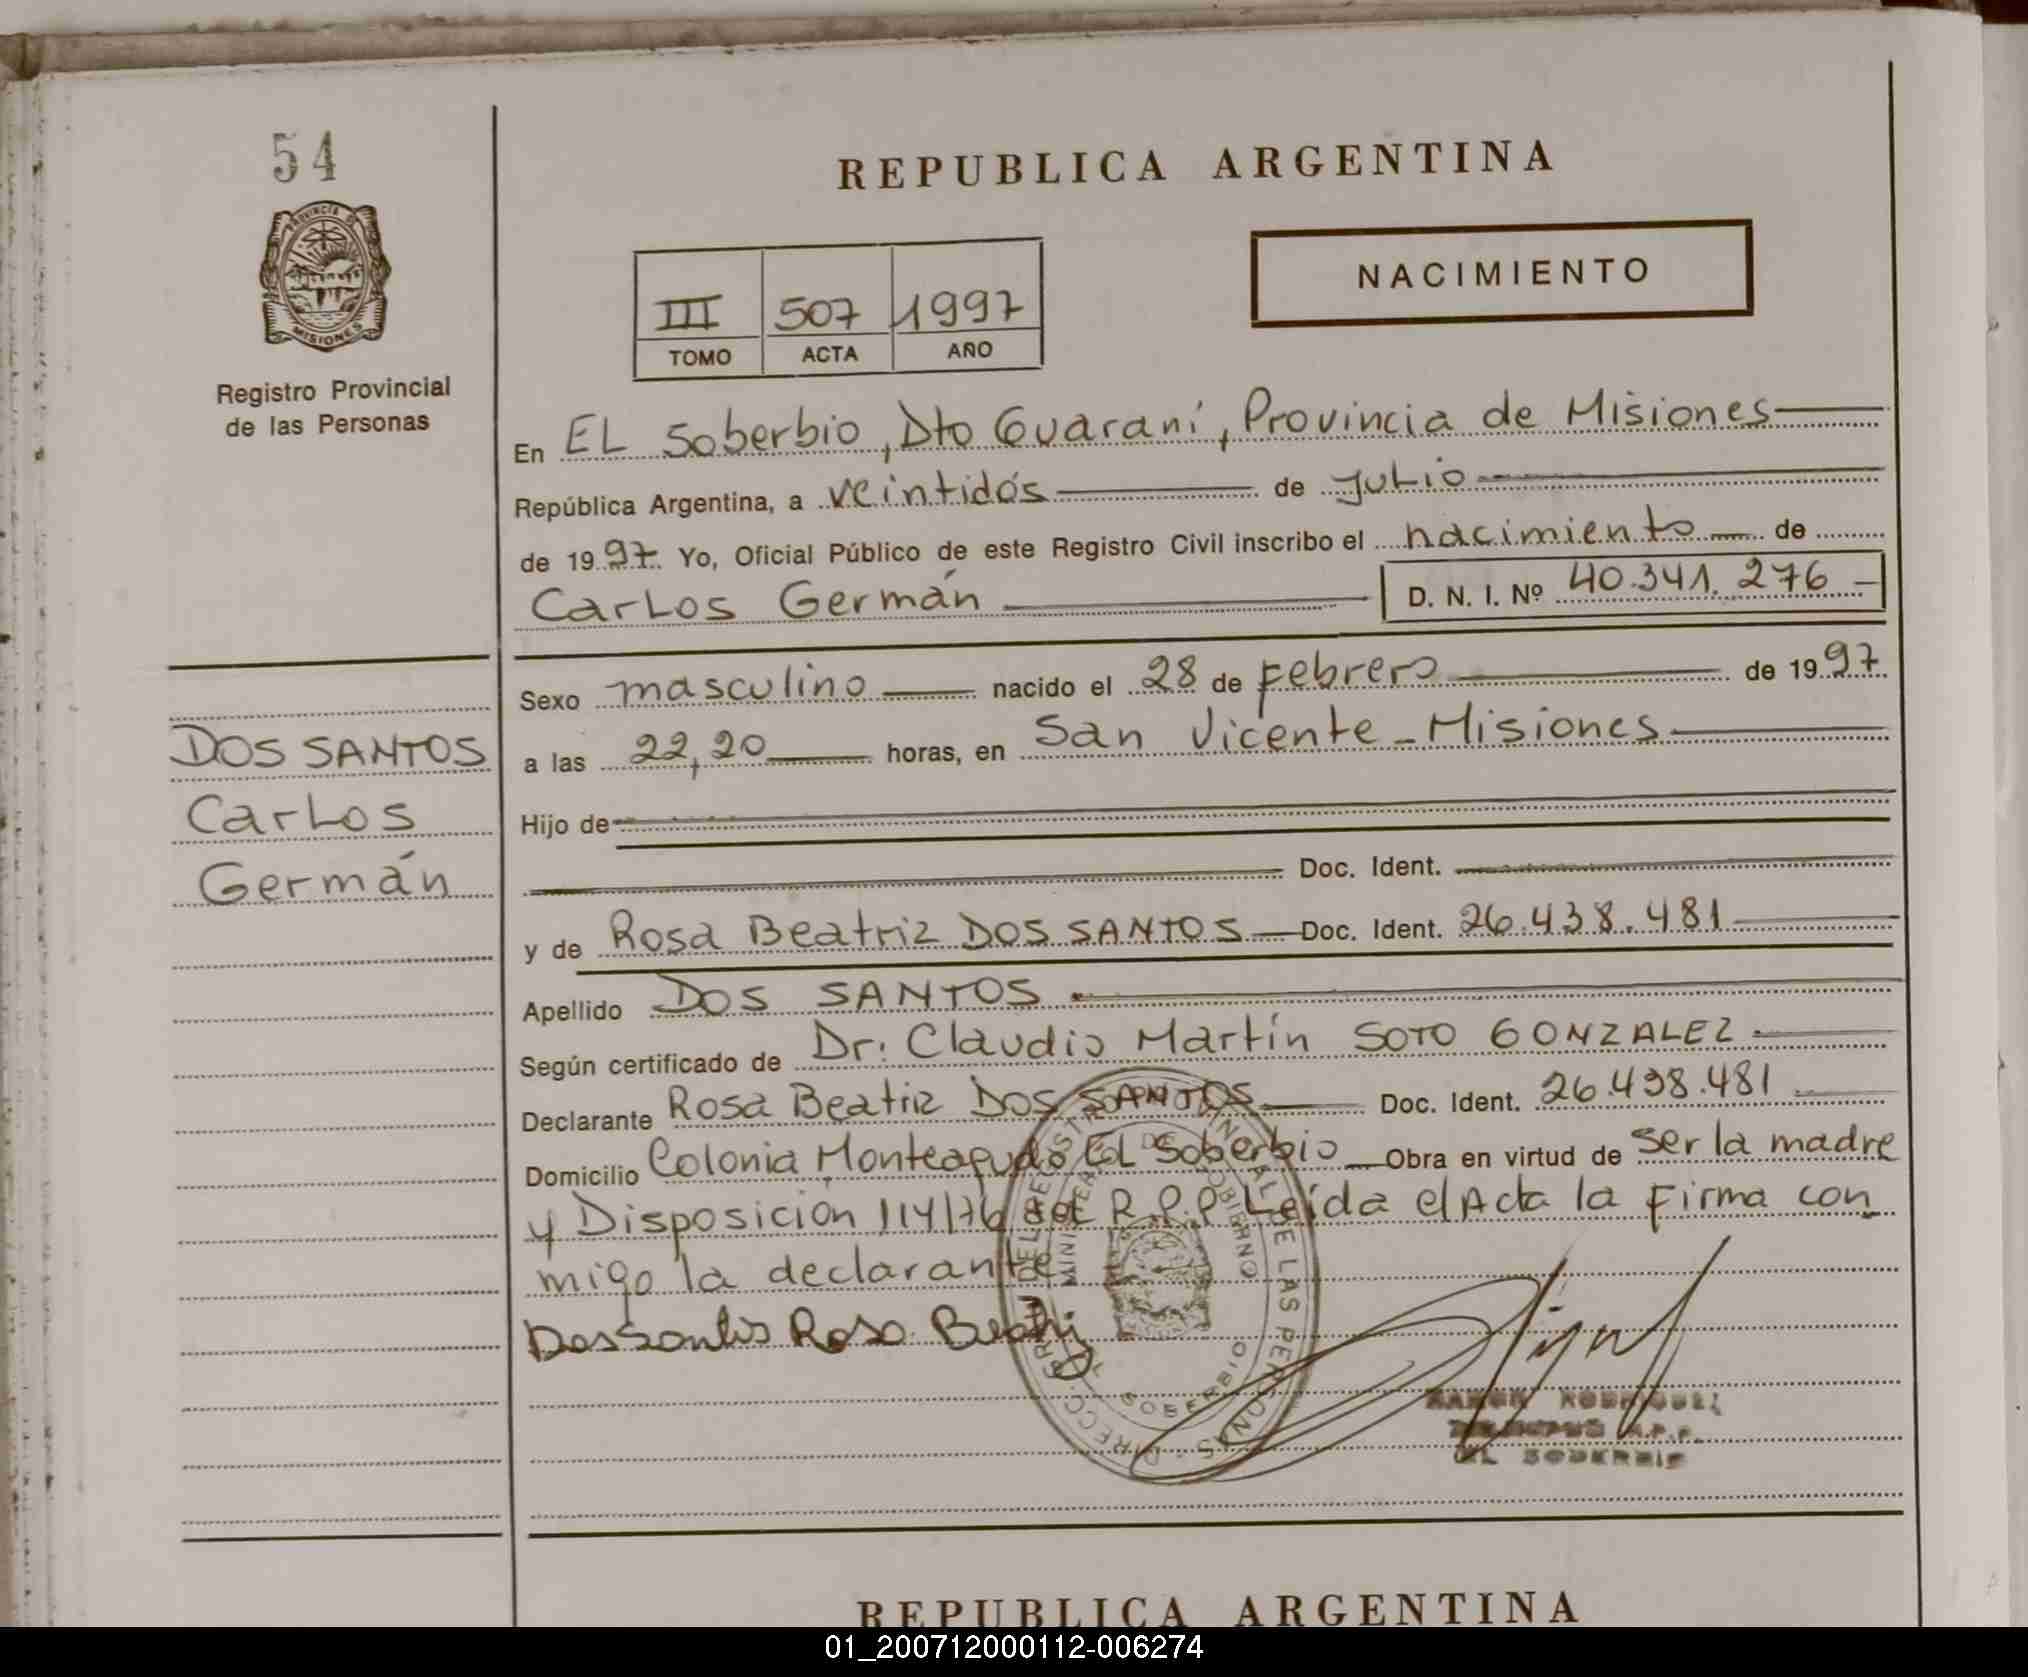 54
PROVINCIA DE
MISIONES
Registro Provincial
de las Personas
REPUBLICA ARGENTINA
NACIMIENTO
III 507 1997
TOMO ACTA AÑO
En EL Soberbio, Dto Guaraní, Provincia de Misiones
República Argentina, a veintidós de julio
de 1997 Yo, Oficial Público de este Registro Civil inscribo el nacimiento de
Carlos Germán D. N. I. Nº 40.341.276
Sexo masculino nacido el 28 de Febrero de 1997
a las 22,20 horas, en San Vicente - Misiones
Hijo de
Doc. Ident.
y de Rosa Beatriz DOS SANTOS Doc. Ident. 26.438.481
Apellido DOS SANTOS
Según certificado de Dr. Claudio Martín SOTO GONZALEZ
Declarante Rosa Beatriz DOS SANTOS Doc. Ident. 26.438.481
Domicilio Colonia Monteagudo EL Soberbio Obra en virtud de ser la madre
y Disposición 114/76 del R.P.P. Leída el Acta la Firma con
migo la declarante
Dos Santos Rosa Beatriz
DOS SANTOS
Carlos
Germán
SOBERBIO
RAMON RODRIGUEZ
R.P.P.
EL SOBERBIO
REPUBLICA ARGENTINA
01_200712000112-006274